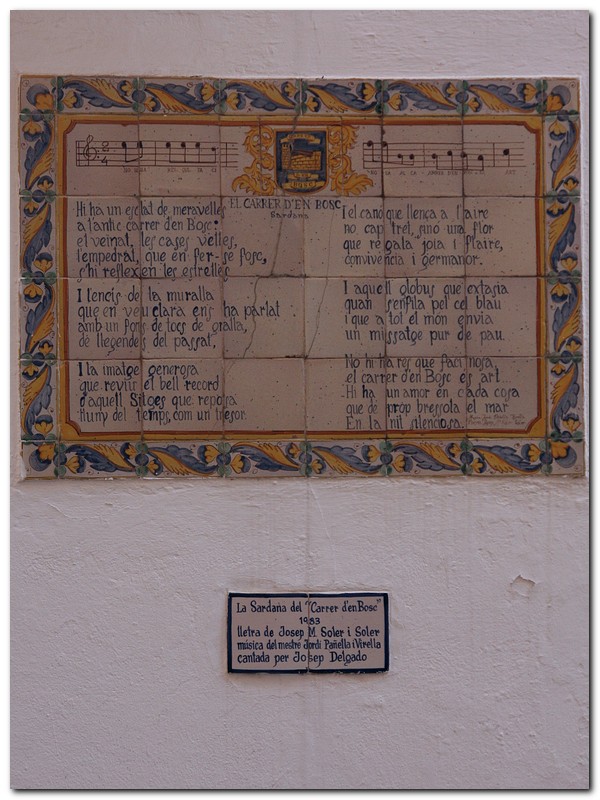 EL CARRER D'EN BOSC
Sardana
Hi ha un esclat de meravelles
a l'antic carrer d'en Bosc:
el veïnat, les cases velles,
l'empedrat, que en fer-se fosc,
s'hi reflexen les estrelles
I l'encís de la muralla
que en veu clara ens ha parlat
amb un fons de tocs de gralla,
de llegendes del passat,
I la imatge generosa
que reviur el bell record
d'aquell Sitges que reposa
lluny del temps, com un tresor.
I el canó que llença a l'aire
no cap trel, sinó una flor
que regala joia i flaire,
convivència i germanor.
I aquell globus que extasia
quan s'enfila pel cel blau
i que a tot el món envia
un missatge pur de pau.
No hi ha res que faci nosa,
el carrer d'en Bosc és art...
Hi ha un amor en cada cosa
que de prop bressola el mar
En la nit silenciosa.
La Sardana del "Carrer d'en Bosc"
1983
lletra de Josep M. Soler i Soler
música del mestre Jordi Pañella i Virella
cantada per Josep Delgado